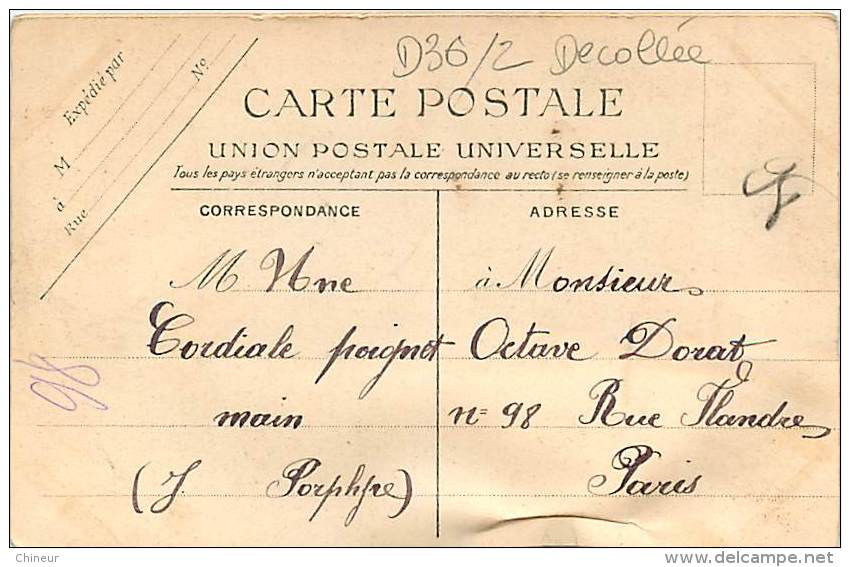 D36/2 Decollée
Expédié par
M
à
Rue
No
CARTE POSTALE
UNION POSTALE UNIVERSELLE
Tous les pays étrangers n'acceptant pas la correspondance au recto (se renseigner à la poste)
CORRESPONDANCE
M Une
Cordiale poignet
main
(J. Porphyre)
98
ADRESSE
à Monsieur
Octave Dorat
n= 98 Rue Flandre
Paris
Chineur
www.delcampe.net